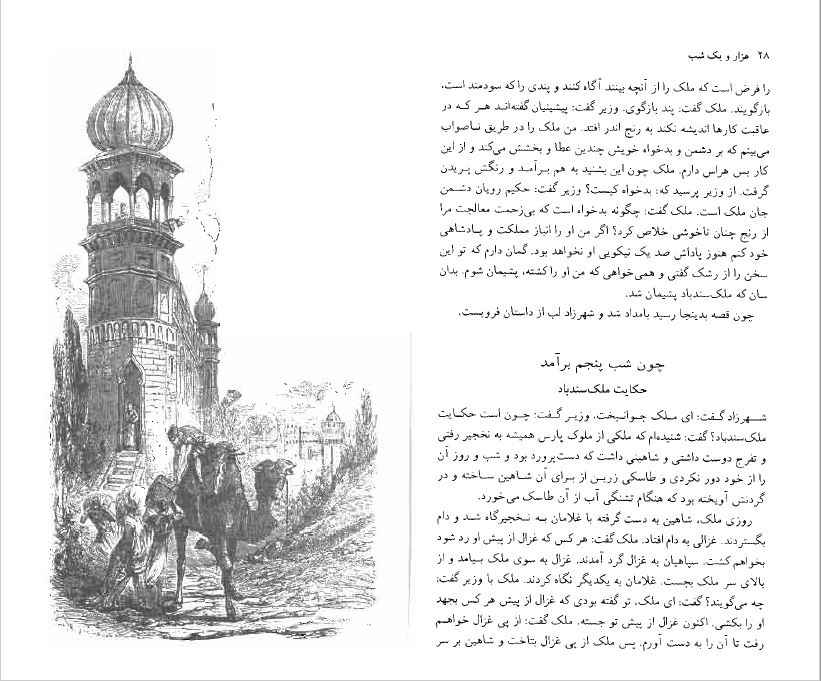 ۲۸ هزار و یک شب
را فرض است که ملک را از آنچه بینند آگاه کنند و پندی را که سودمند است،
بازگویند. ملک گفت: پند بازگوی. وزیر گفت: پیشینیان گفته‌اند هر که در
عاقبت کارها اندیشه نکند به رنج اندر افتد. من ملک را در طریق ناصواب
می‌بینم که بر دشمن و بدخواه خویش چندین عطا و بخشش می‌کند و از این
کار بس هراس دارم. ملک چون این بشنید به هم برآمد و رنگش پریدن
گرفت. از وزیر پرسید که: بدخواه کیست؟ وزیر گفت: حکیم رویان دشمن
جان ملک است. ملک گفت: چگونه بدخواه است که بی‌زحمت معالجت مرا
از رنج چنان ناخوشی خلاص کرد؟ اگر من او را انباز مملکت و پادشاهی
خود کنم هنوز پاداش صد یک نیکویی او نخواهد بود. گمان دارم که تو این
سخن را از رشک گفتی و همی‌خواهی که من او را کشته، پشیمان شوم. بدان
سان که ملک‌سندباد پشیمان شد.
چون قصه بدینجا رسید بامداد شد و شهرزاد لب از داستان فروبست.
چون شب پنجم برآمد
حکایت ملک‌سندباد
شهرزاد گفت: ای ملک جوانبخت، وزیر گفت: چون است حکایت
ملک‌سندباد؟ گفت: شنیده‌ام که ملکی از ملوک پارس همیشه به نخجیر رفتی
و تفرج دوست داشتی و شاهینی داشت که دست‌پرورد بود و شب و روز آن
را از خود دور نکردی و طاسکی زرین از برای آن شاهین ساخته و در
گردنش آویخته بود که هنگام تشنگی آب از آن طاسک می‌خورد.
روزی ملک، شاهین به دست گرفته با غلامان به نخجیرگاه شد و دام
بگستردند. غزالی به دام افتاد. ملک گفت: هر کس که غزال از پیش او رد شود
بخواهم کشت. سپاهیان به غزال گرد آمدند. غزال به سوی ملک بیامد و از
بالای سر ملک بجست. غلامان به یکدیگر نگاه کردند. ملک با وزیر گفت:
چه می‌گویند؟ گفت: ای ملک، تو گفته بودی که غزال از پیش هر کس بجهد
او را بکشی. اکنون غزال از پیش تو جسته. ملک گفت: از پی غزال خواهم
رفت تا آن را به دست آورم. پس ملک از پی غزال بتاخت و شاهین بر سر